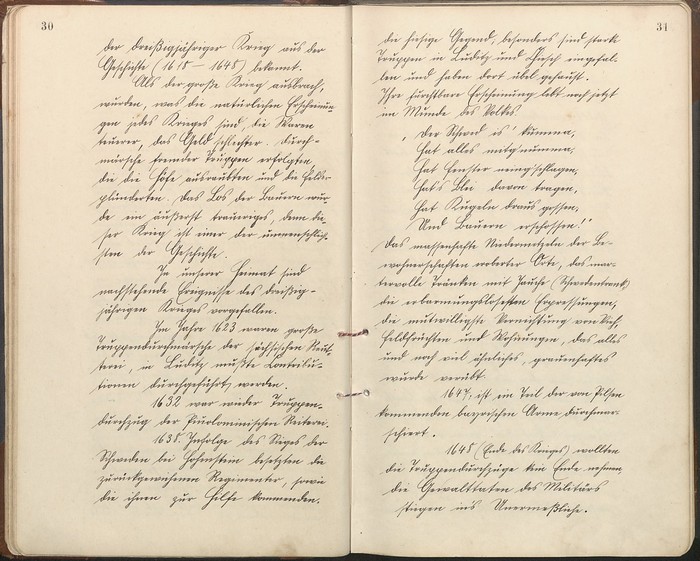 30
der dreißigjähriger Krieg aus der
Geschichte (1618 – 1648) bekannt.
Als der große Krieg ausbrach,
wurden, was die natürlichen Erscheinun-
gen jedes Krieges sind, die Waren
teuerer, das Geld schlechter. Durch-
märsche fremder Truppen erfolgten,
die die Höfe ausraubten und die Felder
plünderten. Das Los der Bauern wur-
de ein äußerst trauriges, denn die-
ser Krieg ist einer der unmenschlich-
sten der Geschichte.
In unserer Heimat sind
nachstehende Ereignisse des dreißig-
jährigen Krieges vorgefallen.
Im Jahre 1623 waren große
Truppendurchmärsche der sächsischen Reit-
terei, in Luditz mußte Kontribu-
tionen durchgeführt werden.
1632 war wieder Truppen-
durchzug der Piccolominischen Reiterei.
1638. Infolge des Sieges der
Schweden bei besetzten die
zurückgewiesenen Regimenter, sowie
die ihnen zur Hilfe kommenden,
31
die hiesige Gegend, besonders sind starke
Truppen in Luditz und Chiesch eingefal-
len und haben dort übel gehaust.
Ihre furchtbare Erscheinung lebt noch jetzt
im Munde des Volkes.
„Der Schwed is' kumma,
Hat alles mitg'numma,
Hat Fenster neing'schlagen,
Hat's Blei davon tragen,
Hat Kugeln draus gossen,
Und Bauern erschossen!"
Das massenhafte Niedermetzeln der Be-
wohnerschaften eroberter Orte, das mar-
tervolle Tränken mit Jauche (Schwedentrunk)
die erbarmungslosesten Erpressungen,
die mutwilligste Vernichtung von Vieh,
Feldfrüchten und Wohnungen, das alles
und noch viel ähnliches, grauenhaftes
wurde verübt.
1647, ist ein Teil der von Pilsen
kommenden bayrischen Armee durchmar-
schiert.
1648 (Ende des Krieges) wollten
die Truppendurchzüge kein Ende nehmen,
die Gewalttaten des Militärs
stiegen in's Unermeßliche.